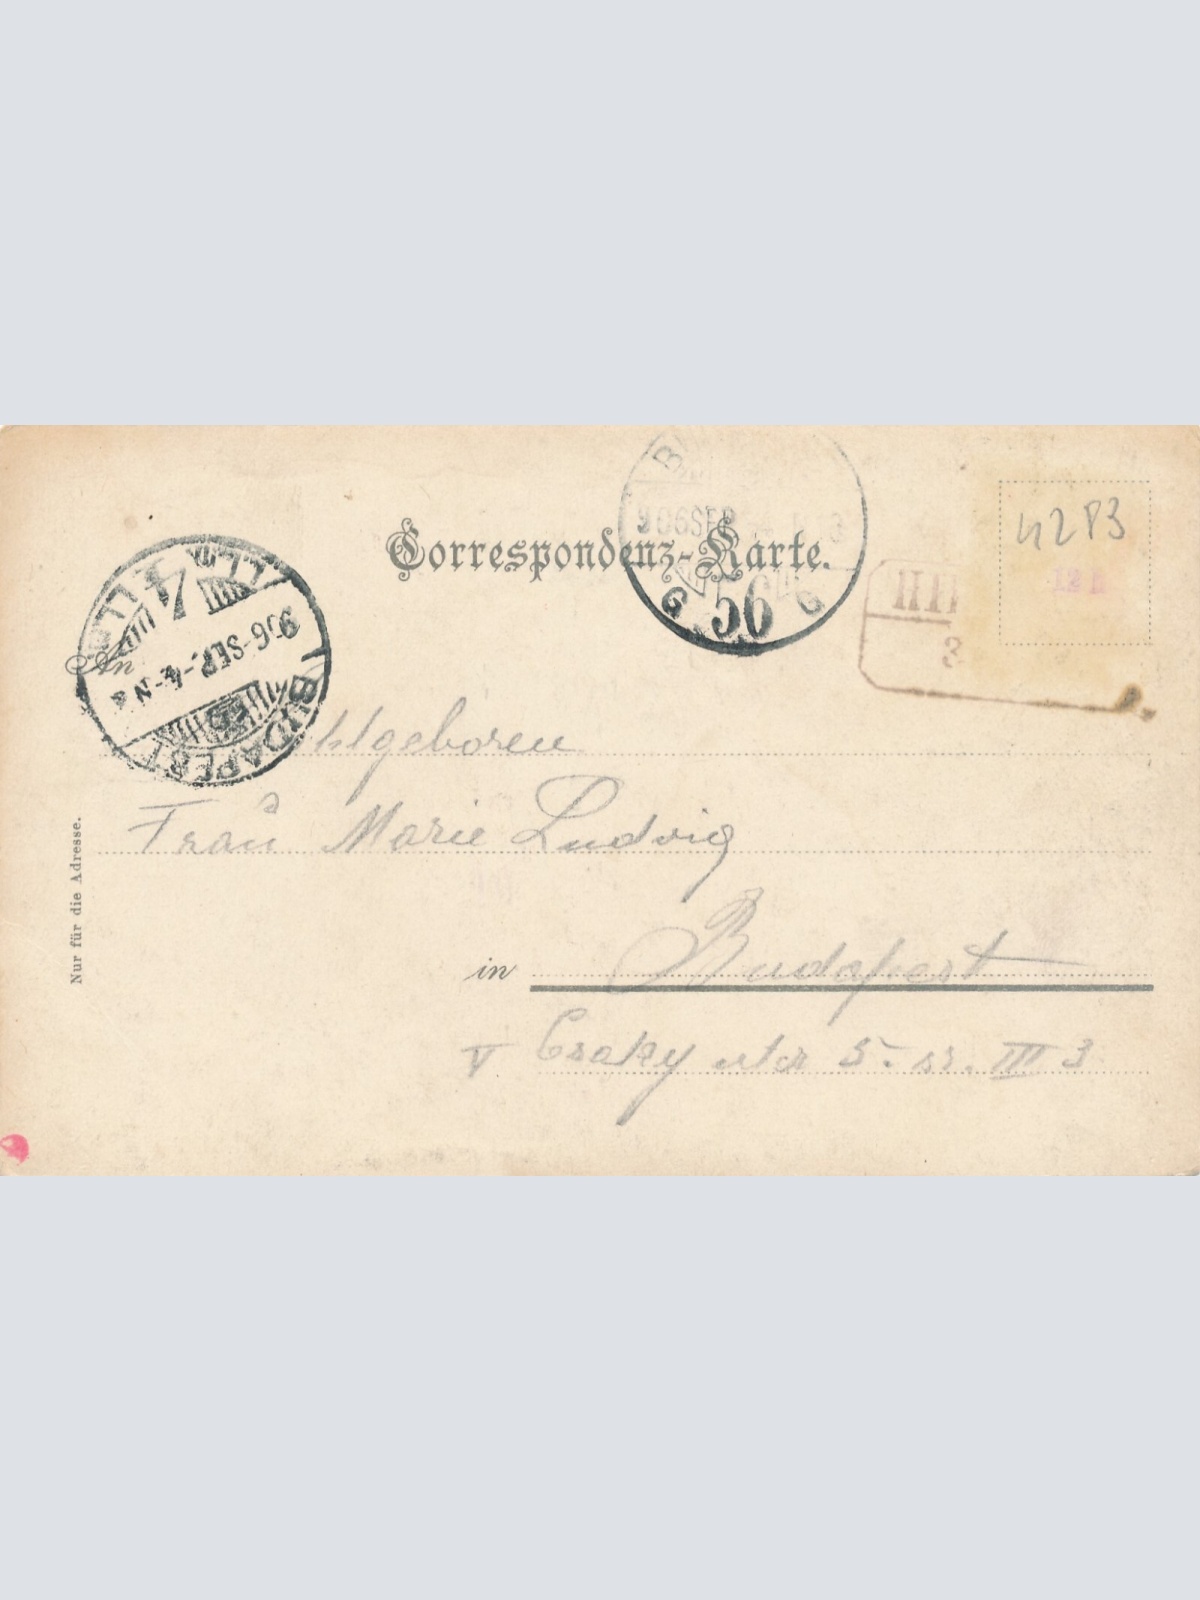 Correspondenz-Karte.
906 SEP
56
G G
4283
12
BUDAPEST
906-SEP.-4-N4
An
hlgeboren
Frau Marie Ludwig
in Budapest
V Csaky utca 5. sz. III 3
Nur für die Adresse.